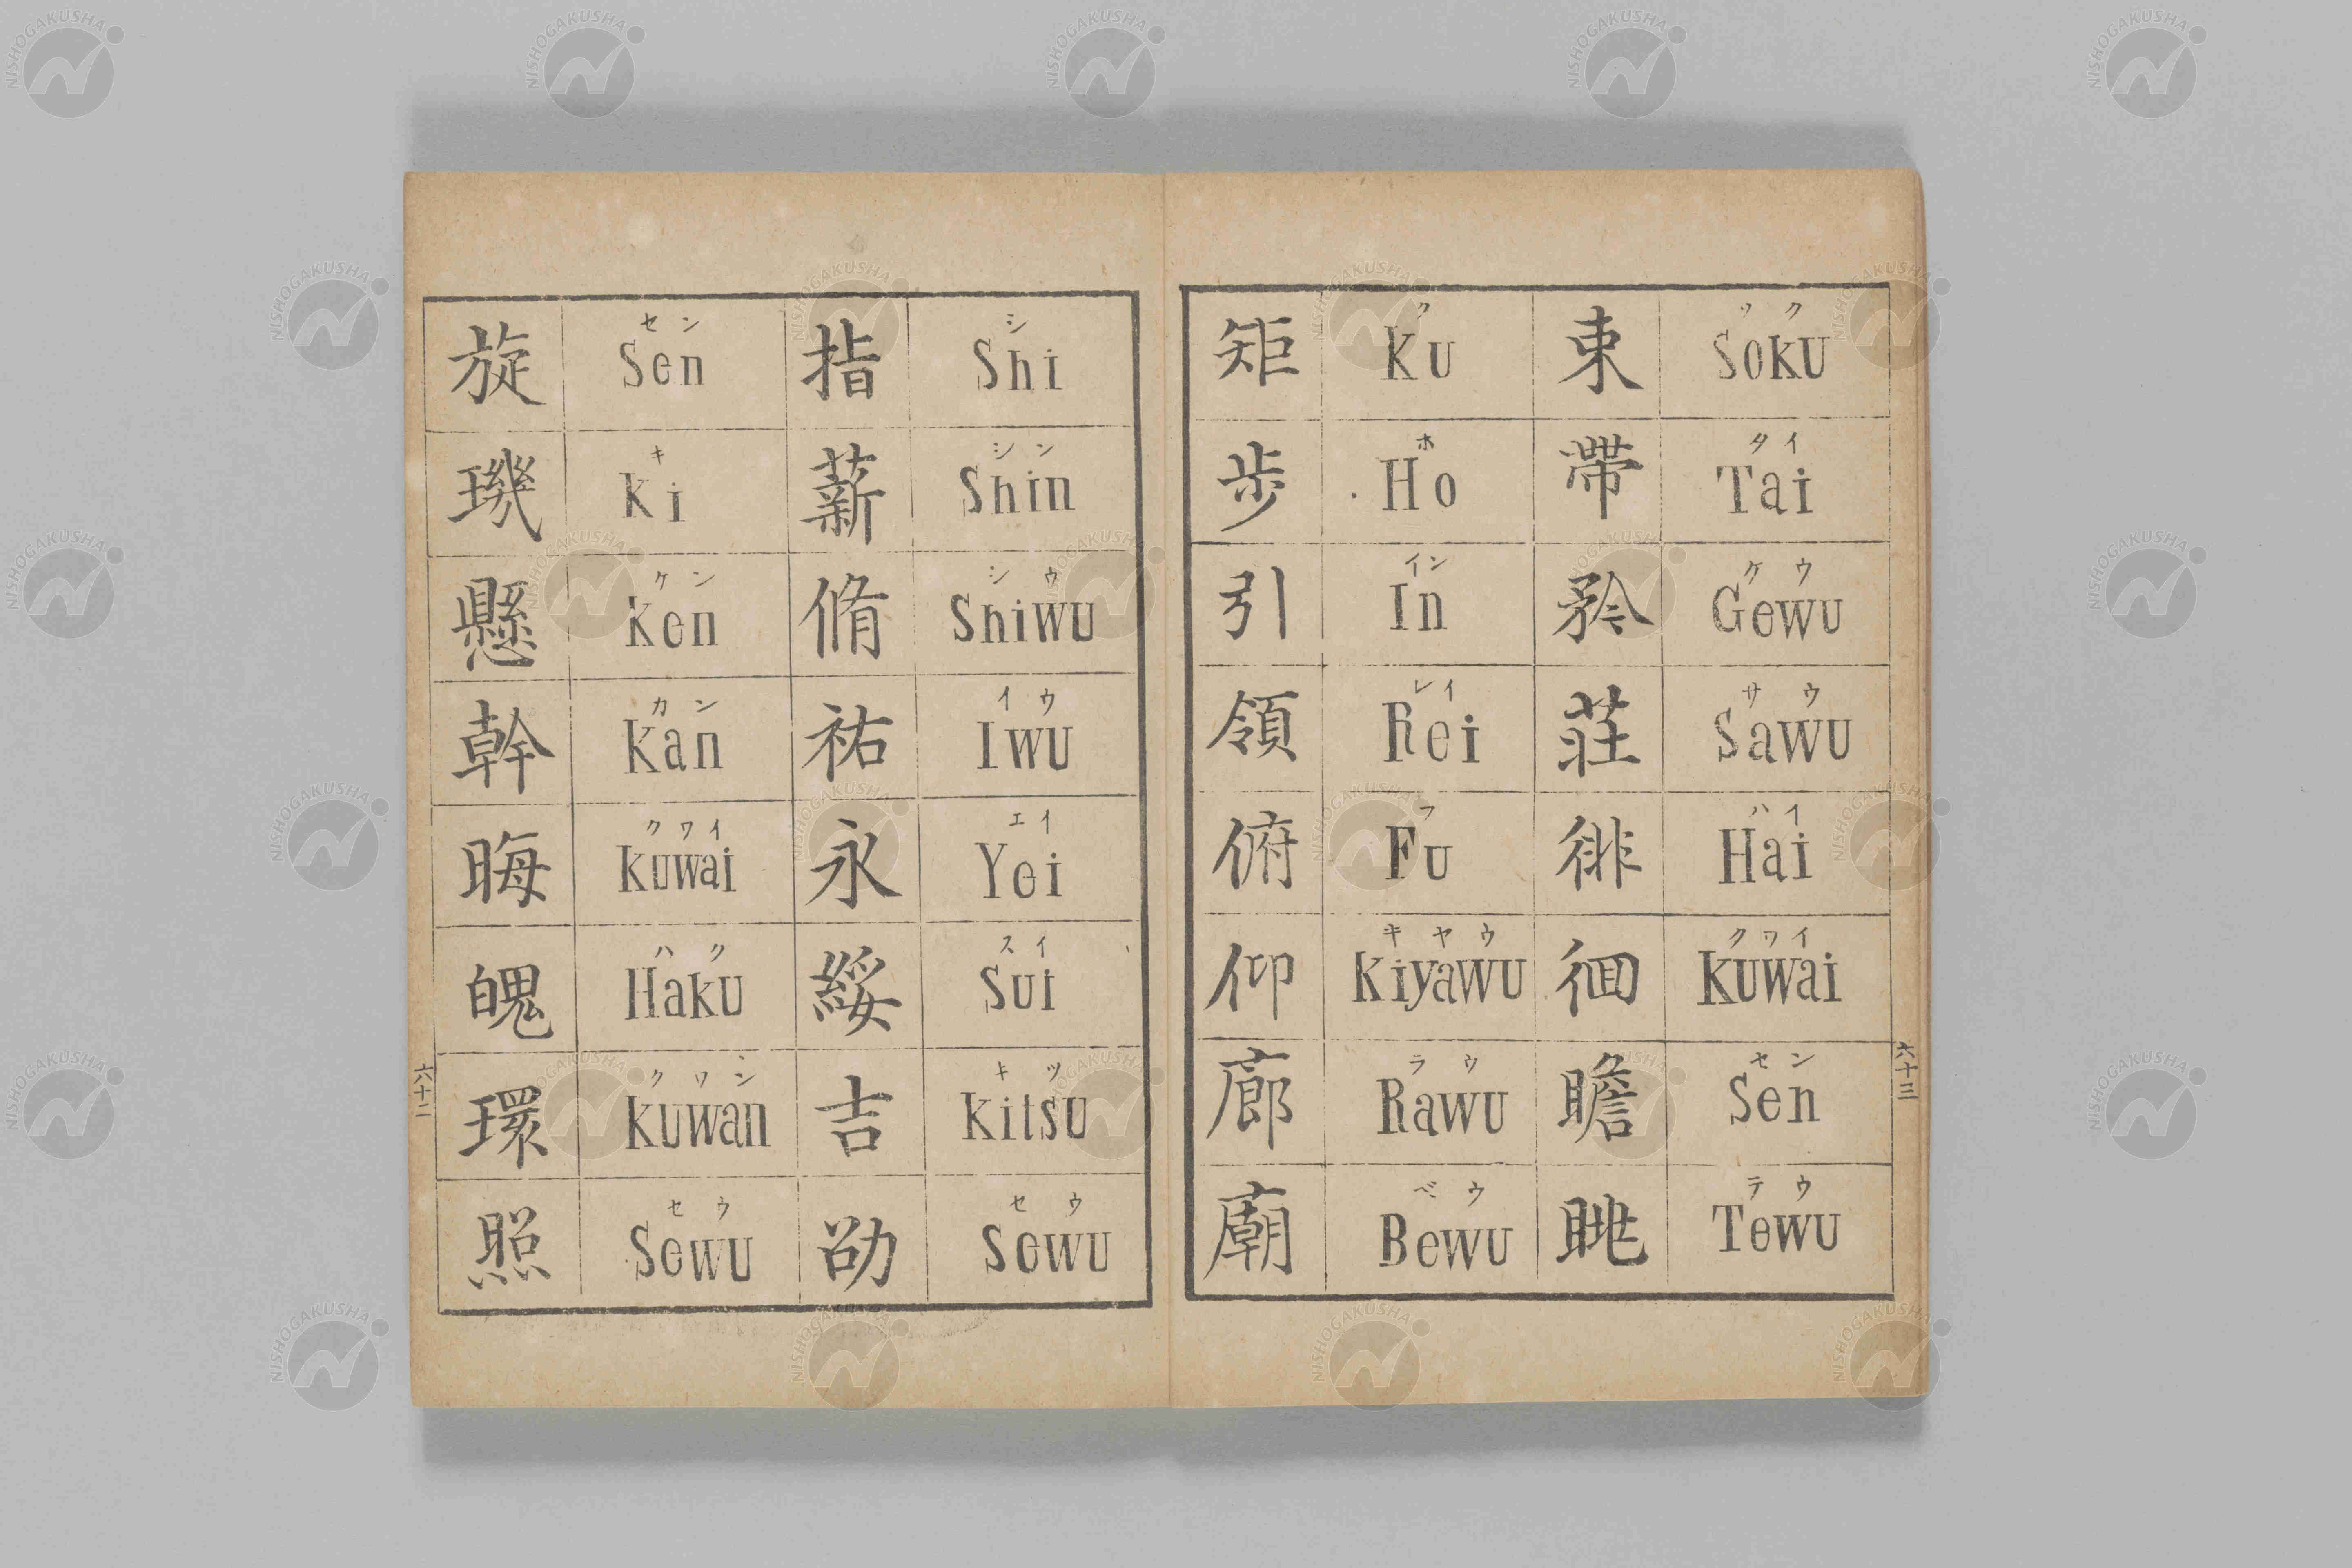 旋 セン Sen
璣 キ Ki
懸 ケン Ken
幹 カン Kan
晦 クワイ Kuwai
魄 ハク Haku
環 クワン Kuwan
照 セウ Sewu
指 シ Shi
薪 シン Shin
脩 シウ Shiwu
祐 イウ Iwu
永 エイ Yei
綏 スイ Sui
吉 キツ Kitsu
劭 セウ Sewu
六十二
矩 ク Ku
歩 ホ Ho
引 イン In
領 レイ Rei
俯 フ Fu
仰 キヤウ Kiyawu
廊 ラウ Rawu
廟 ベウ Bewu
束 ソク Soku
帶 タイ Tai
矜 ケウ Gewu
莊 サウ Sawu
徘 ハイ Hai
徊 クワイ Kuwai
瞻 セン Sen
眺 テウ Tewu
六十三
NISHOGAKUSHA